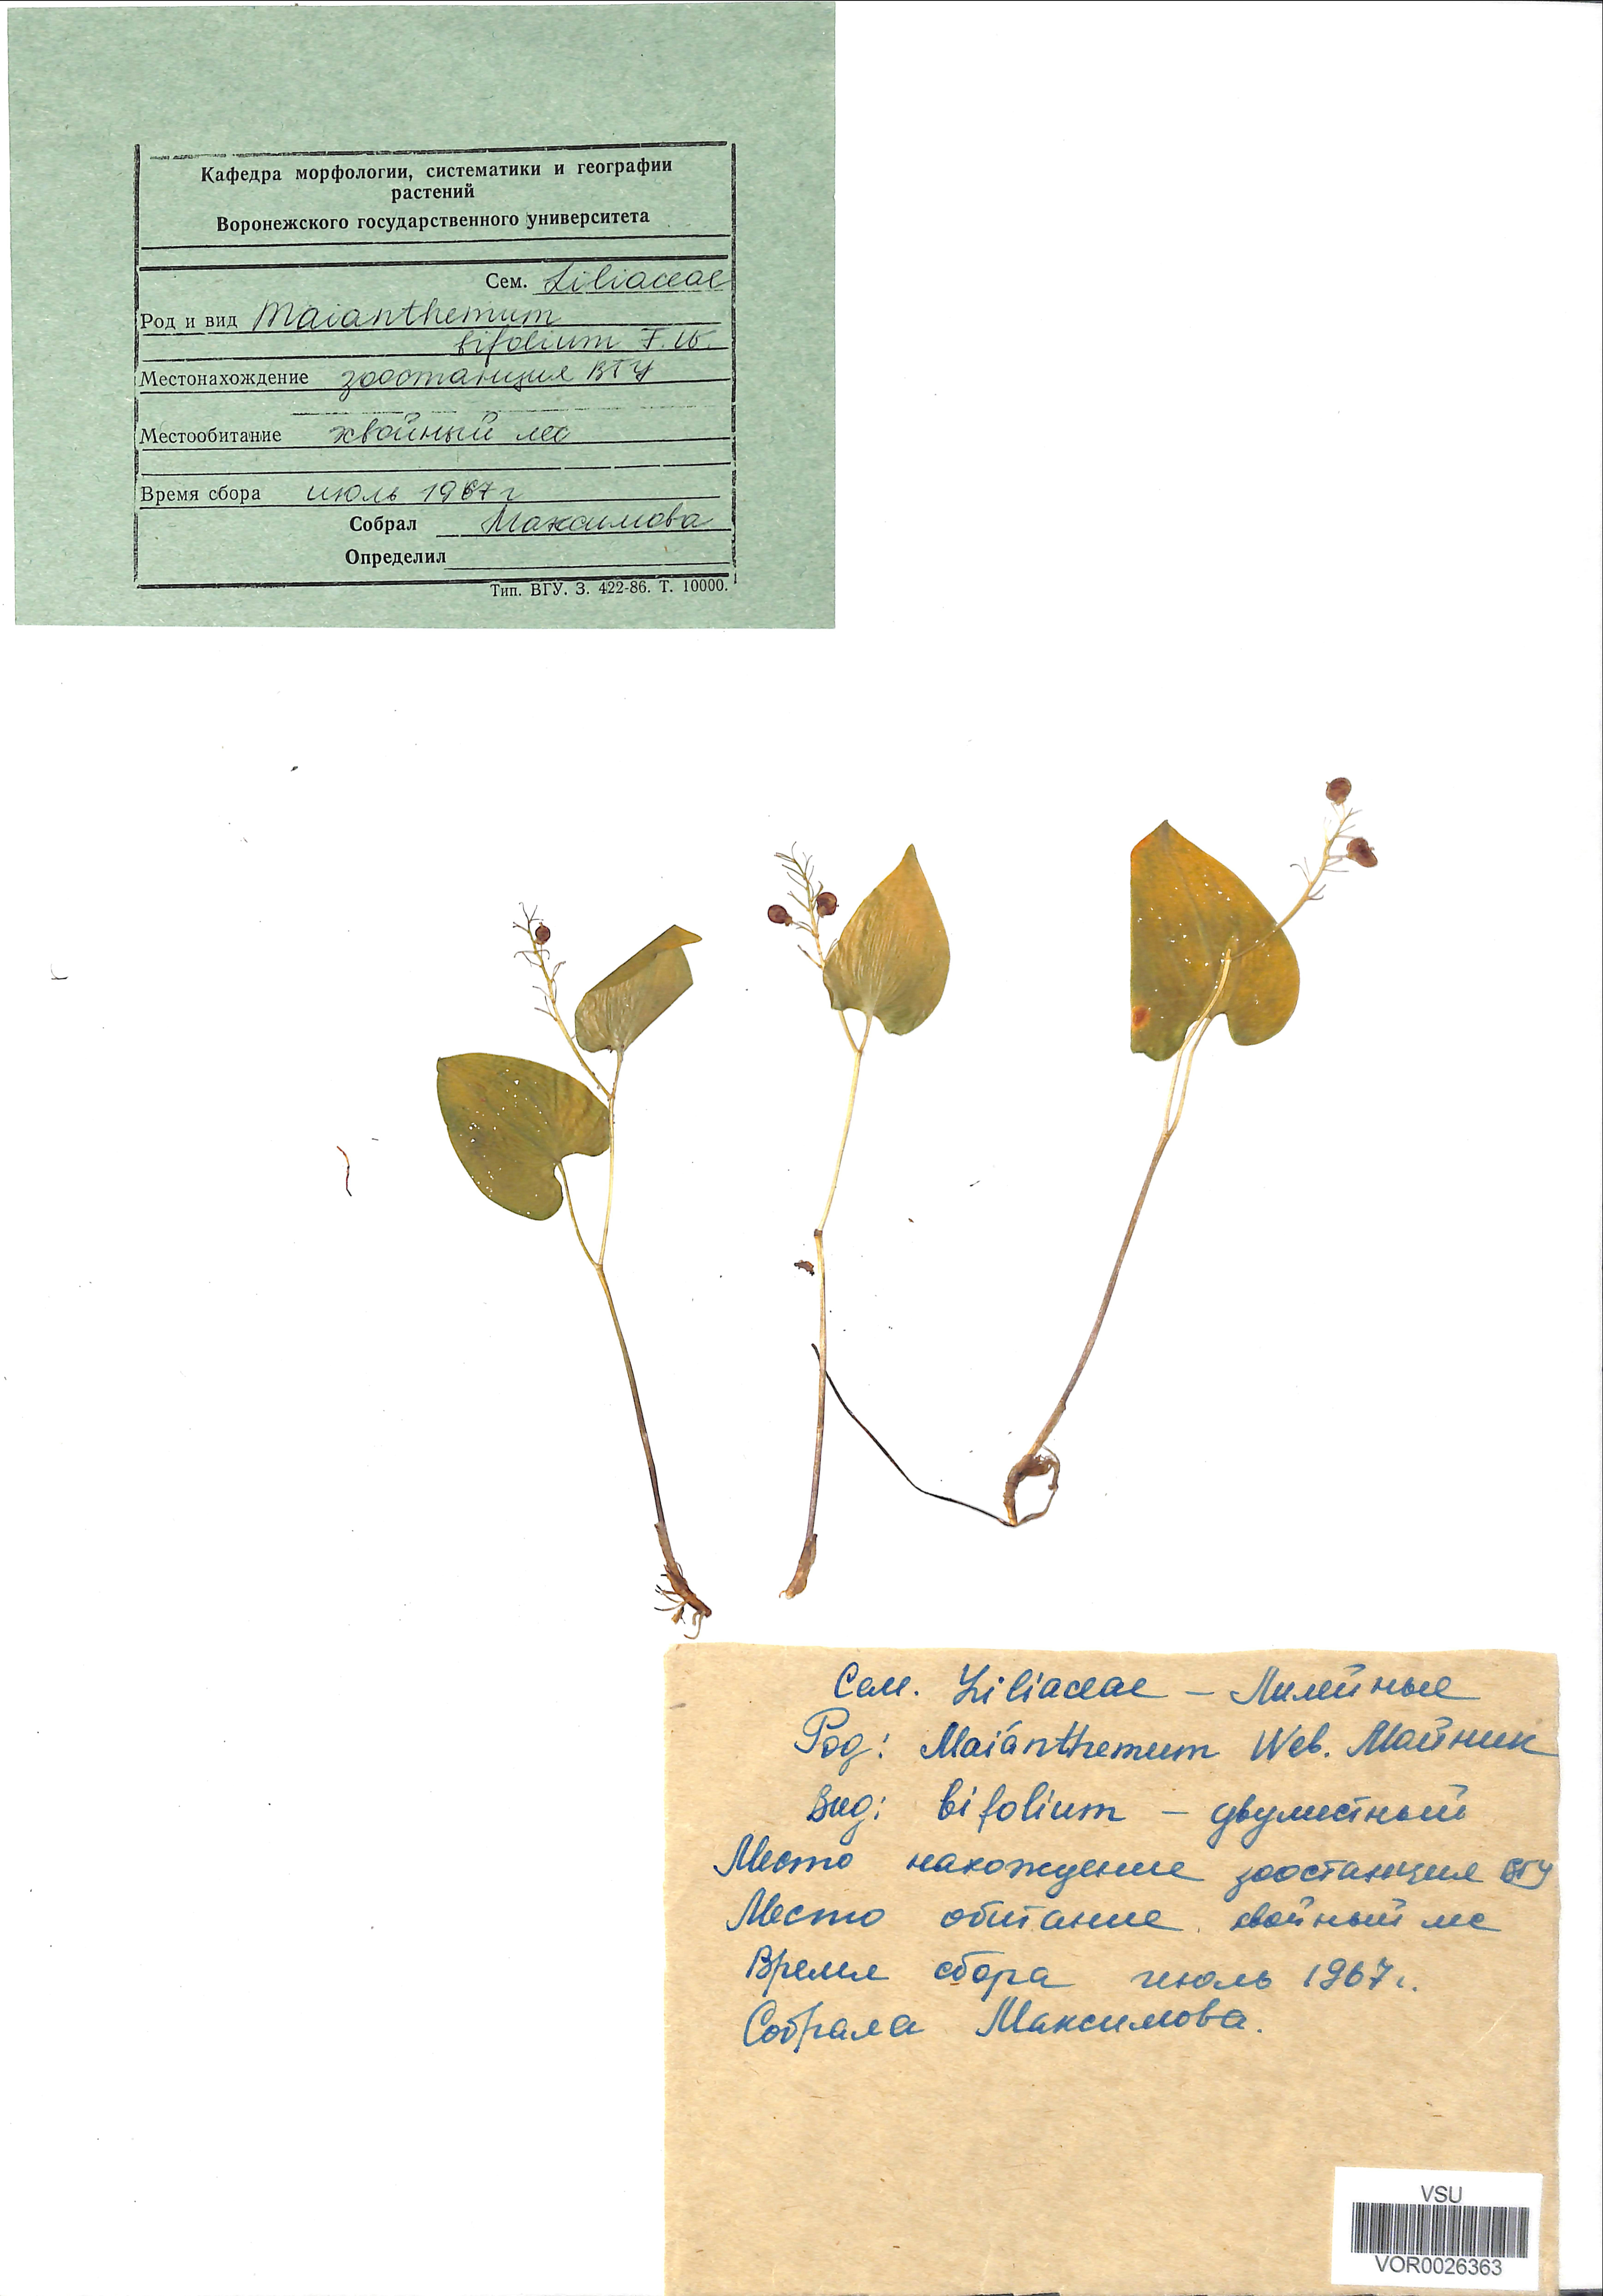 Кафедра морфологии, систематики и географии
растений
Воронежского государственного университета
Сем. Liliaceae
Род и вид Maianthemum
bifolium F. W.
Местонахождение зоостанция ВГУ
Местообитание хвойный лес
Время сбора июль 1967 г
Собрал Максимова
Определил
Тип. ВГУ. З. 422-86. Т. 10000.
Сем. Liliaceae – Лилейные
Род: Maiánthemum Web. Майник
Вид: bifolium – двулистный
Место нахождение зоостанция ВГУ
Место обитание хвойный лес
Время сбора июль 1967 г.
Собрала Максимова.
VSU
VOR0026363